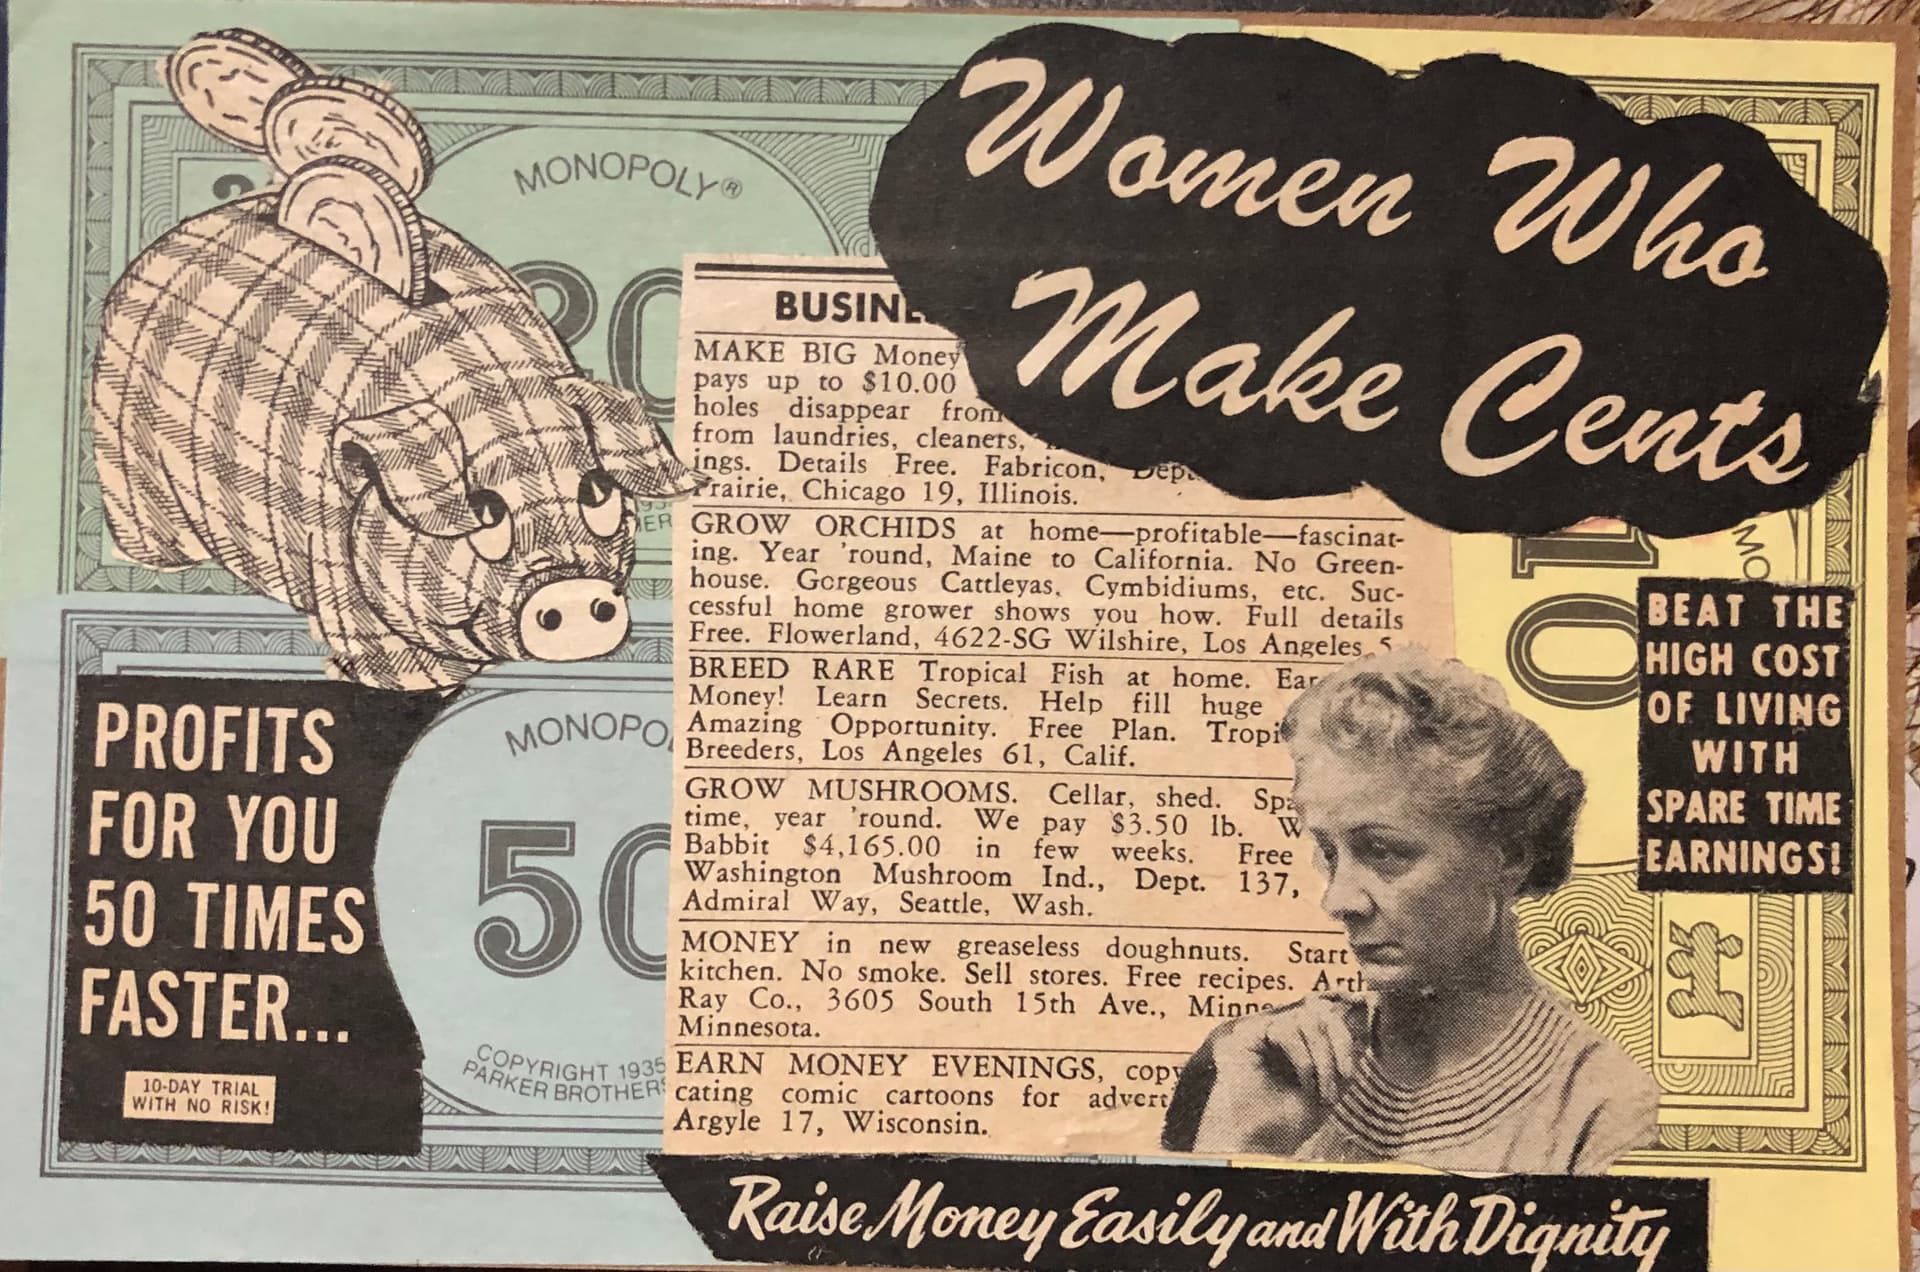 MONOPOLY®
20
Women Who
Make Cents
BUSINE
MAKE BIG Money
pays up to $10.00
holes disappear from
from laundries, cleaners,
ings. Details Free. Fabricon, Dept.
Prairie, Chicago 19, Illinois.
GROW ORCHIDS at home—profitable—fascinat-
ing. Year 'round, Maine to California. No Green-
house. Gorgeous Cattleyas, Cymbidiums, etc. Suc-
cessful home grower shows you how. Full details
Free. Flowerland, 4622-SG Wilshire, Los Angeles 5
BREED RARE Tropical Fish at home. Ear
Money! Learn Secrets. Help fill huge
Amazing Opportunity. Free Plan. Tropi
Breeders, Los Angeles 61, Calif.
GROW MUSHROOMS. Cellar, shed. Spa
time, year 'round. We pay $3.50 lb. W
Babbit $4,165.00 in few weeks. Free
Washington Mushroom Ind., Dept. 137,
Admiral Way, Seattle, Wash.
MONEY in new greaseless doughnuts. Start
kitchen. No smoke. Sell stores. Free recipes. Arth
Ray Co., 3605 South 15th Ave., Minne
Minnesota.
EARN MONEY EVENINGS, copy
cating comic cartoons for advert
Argyle 17, Wisconsin.
MO
10
BEAT THE
HIGH COST
OF LIVING
WITH
SPARE TIME
EARNINGS!
PROFITS
FOR YOU
50 TIMES
FASTER...
10-DAY TRIAL
WITH NO RISK!
MONOPOL
50
COPYRIGHT 1935
PARKER BROTHERS
Raise Money Easily and With Dignity